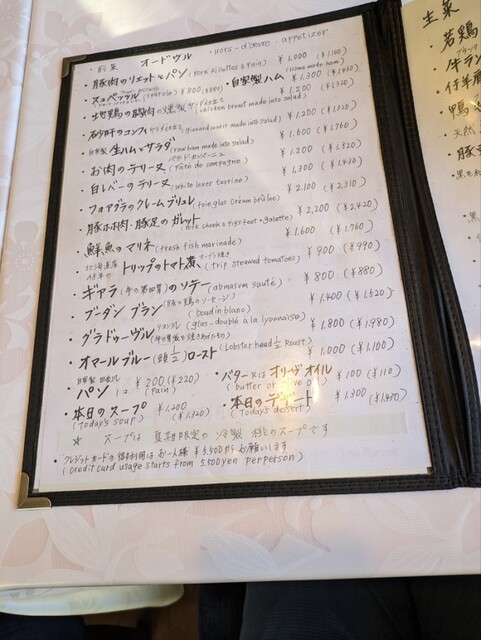 前菜 オードヴル ・hors-d'oevre・appetizer
・豚肉のリエットとパン (Pork Rillettes & Pain) ¥1,000 (¥1,100)
・スュペッツル (spätzle) ¥800 (¥880) ・自家製ハム (Home made ham) ¥1,300 (¥1,430)
・地鶏の胸肉の燻製 サラダ仕立て (chicken breast made into salad) ¥1,200 (¥1,320)
・砂肝のコンフィ サラダ仕立て (gizzard confit made into salad) ¥1,200 (¥1,320)
・自家製 生ハムとサラダ (raw ham made into salad) ¥1,600 (¥1,760)
・お肉のテリーヌ パテ・ド・カンパーニュ (Pâté de compagno) ¥1,200 (¥1,320)
・白レバーのテリーヌ (white lever terrine) ¥1,300 (¥1,430)
・フォアグラのクレームブリュレ (foie glas Crèam brûlee) ¥2,100 (¥2,310)
・豚ホホ肉・豚足のガレット (Pork cheek & pigs feet・galette) ¥2,200 (¥2,420)
・鮮魚のマリネ (fresh fish marinade) ¥1,600 (¥1,760)
・トリップのトマト煮 オーブン焼き (trip steawed tomatoes) ¥900 (¥990)
・ギアラ (牛の第四胃) のソテー (abmasum sauté) ¥800 (¥880)
・ブーダン ブラン (豚と鶏のソーセージ) (boudin blano) ¥1,400 (¥1,520)
・グラドゥーヴル リヨン風 (glas-doublé à la lyonnaise) ¥1,800 (¥1,980)
・オマールブルー (頭½) ロースト (Lobster head ½ Roast) ¥1,000 (¥1,100)
・パン 1コ (Pain) ¥200 (¥220) ・バター又はオリーヴオイル (butter or olive oil) ¥100 (¥110)
・本日のスープ (Today's soup) ¥1,200 (¥1,320) ・本日のデザート (Today's dessert) ¥1,300 (¥1,430)
☆ スープは 夏期限定の 冷製 桃のスープです
・クレジットカードの御利用は お一人様 ¥5,500から お願いします
(credit card usage starts from 5,500 yen per person)
主菜
・若鶏
・牛ラン
・仔羊
・鴨
・天然
・豚